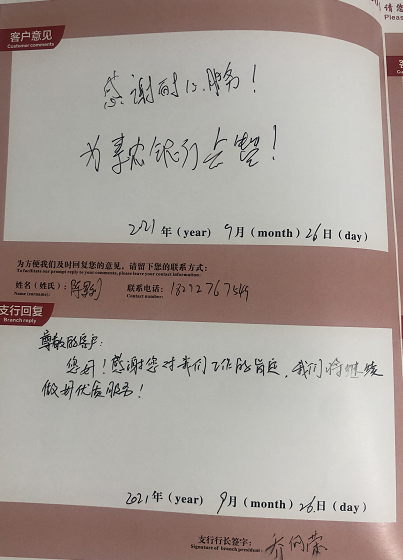 请您
Pleas
客户意见
Customer comments
感谢耐心服务！
为农银行点赞！
2021年（year）9月（month）26日（day）
为方便我们及时回复您的意见，请留下您的联系方式：
To facilitate our prompt reply to your comments, please leave your contact information:
姓名（姓氏）：陈 联系电话：
Name (surname): Contact number:
支行回复
Branch reply
尊敬的客户：
您好！感谢您对我们工作的肯定，我们将继续
做好优质服务！
2021年（year）9月（month）26日（day）
支行行长签字：
Signature of branch president: